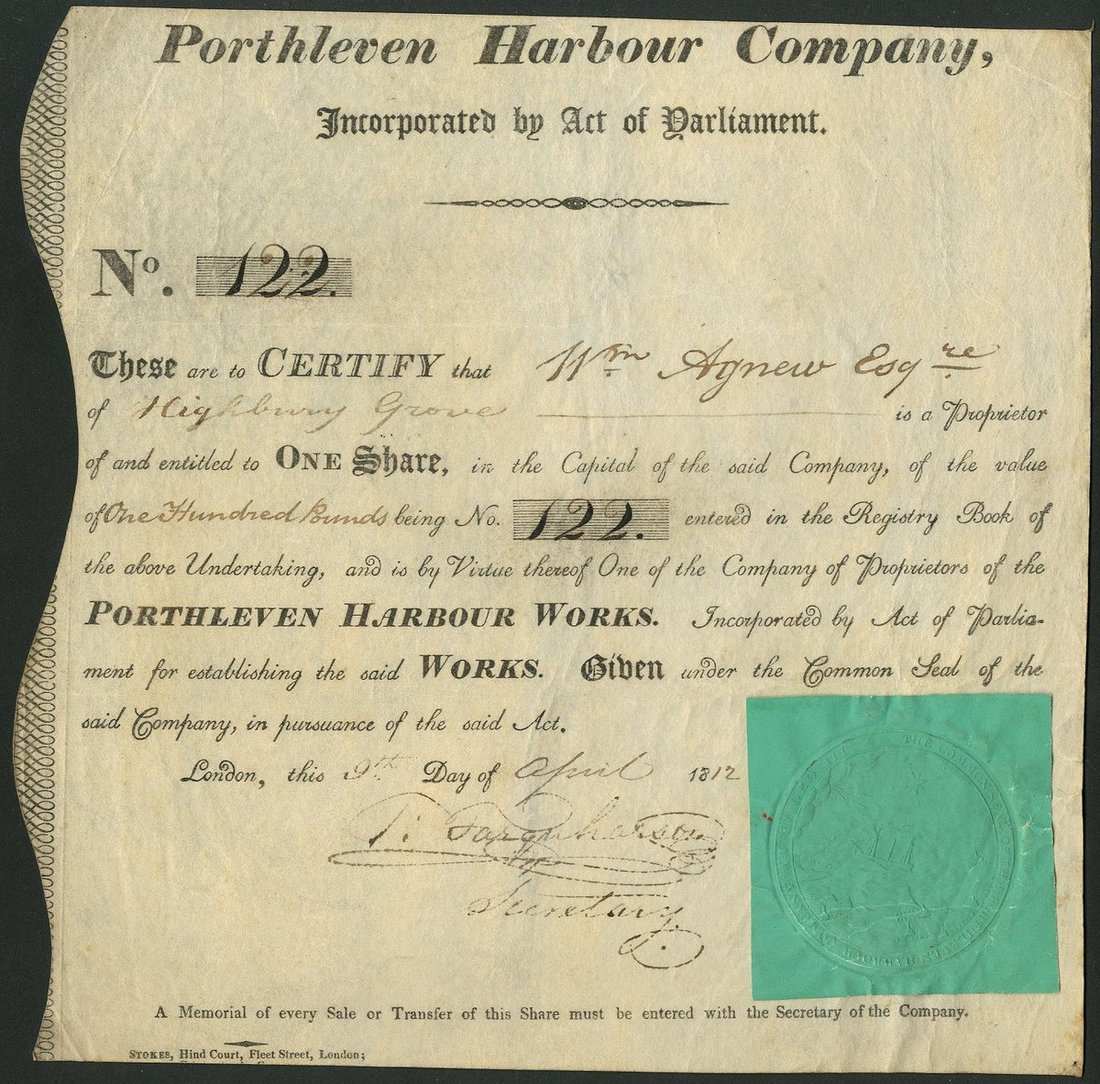 Porthleven Harbour Company,
Incorporated by Act of Parliament.
No. 122.
These are to CERTIFY that Wm Agnew Esqre
of Highbury Grove is a Proprietor
of and entitled to ONE Share, in the Capital of the said Company, of the value
of One Hundred Pounds being No. 122. entered in the Registry Book of
the above Undertaking, and is by Virtue thereof One of the Company of Proprietors of the
PORTHLEVEN HARBOUR WORKS. Incorporated by Act of Parlia-
ment for establishing the said WORKS. Given under the Common Seal of the
said Company, in pursuance of the said Act.
London, this 9th Day of April 1812
Farquharson
Secretary
THE COMMON SEAL
HARBOUR COMPANY
A Memorial of every Sale or Transfer of this Share must be entered with the Secretary of the Company.
STOKES, Hind Court, Fleet Street, London;